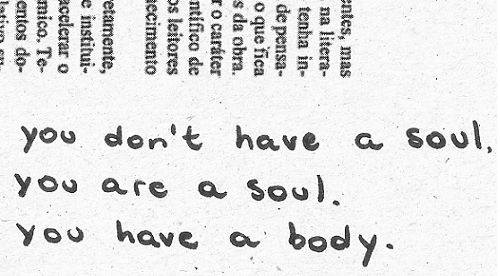 entes, mas
na litera-
tenha in-
de pensa-
o que fica
s da obra.
r o caráter
ntífico de
os leitores
gecimento
retamente,
e institui-
acelerar o
mico. Te-
entos do-
lativo su-
you don't have a soul.
you are a soul.
you have a body.